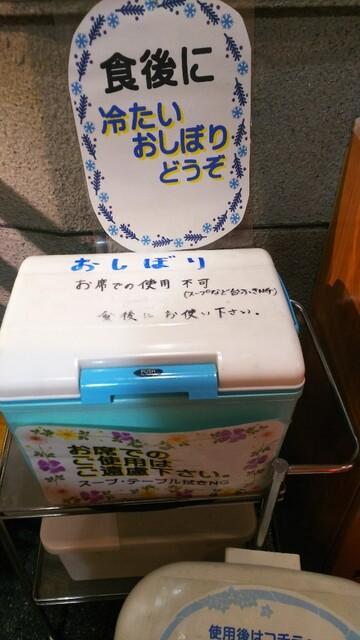 食後に
冷たい
おしぼり
どうぞ
おしぼり
お席での使用 不可
(スープなど台ふきNG)
食後に お使い下さい。
PUSH
お席での
ご使用は
ご遠慮下さい。
スープ・テーブル拭きNG
使用後はコチラ